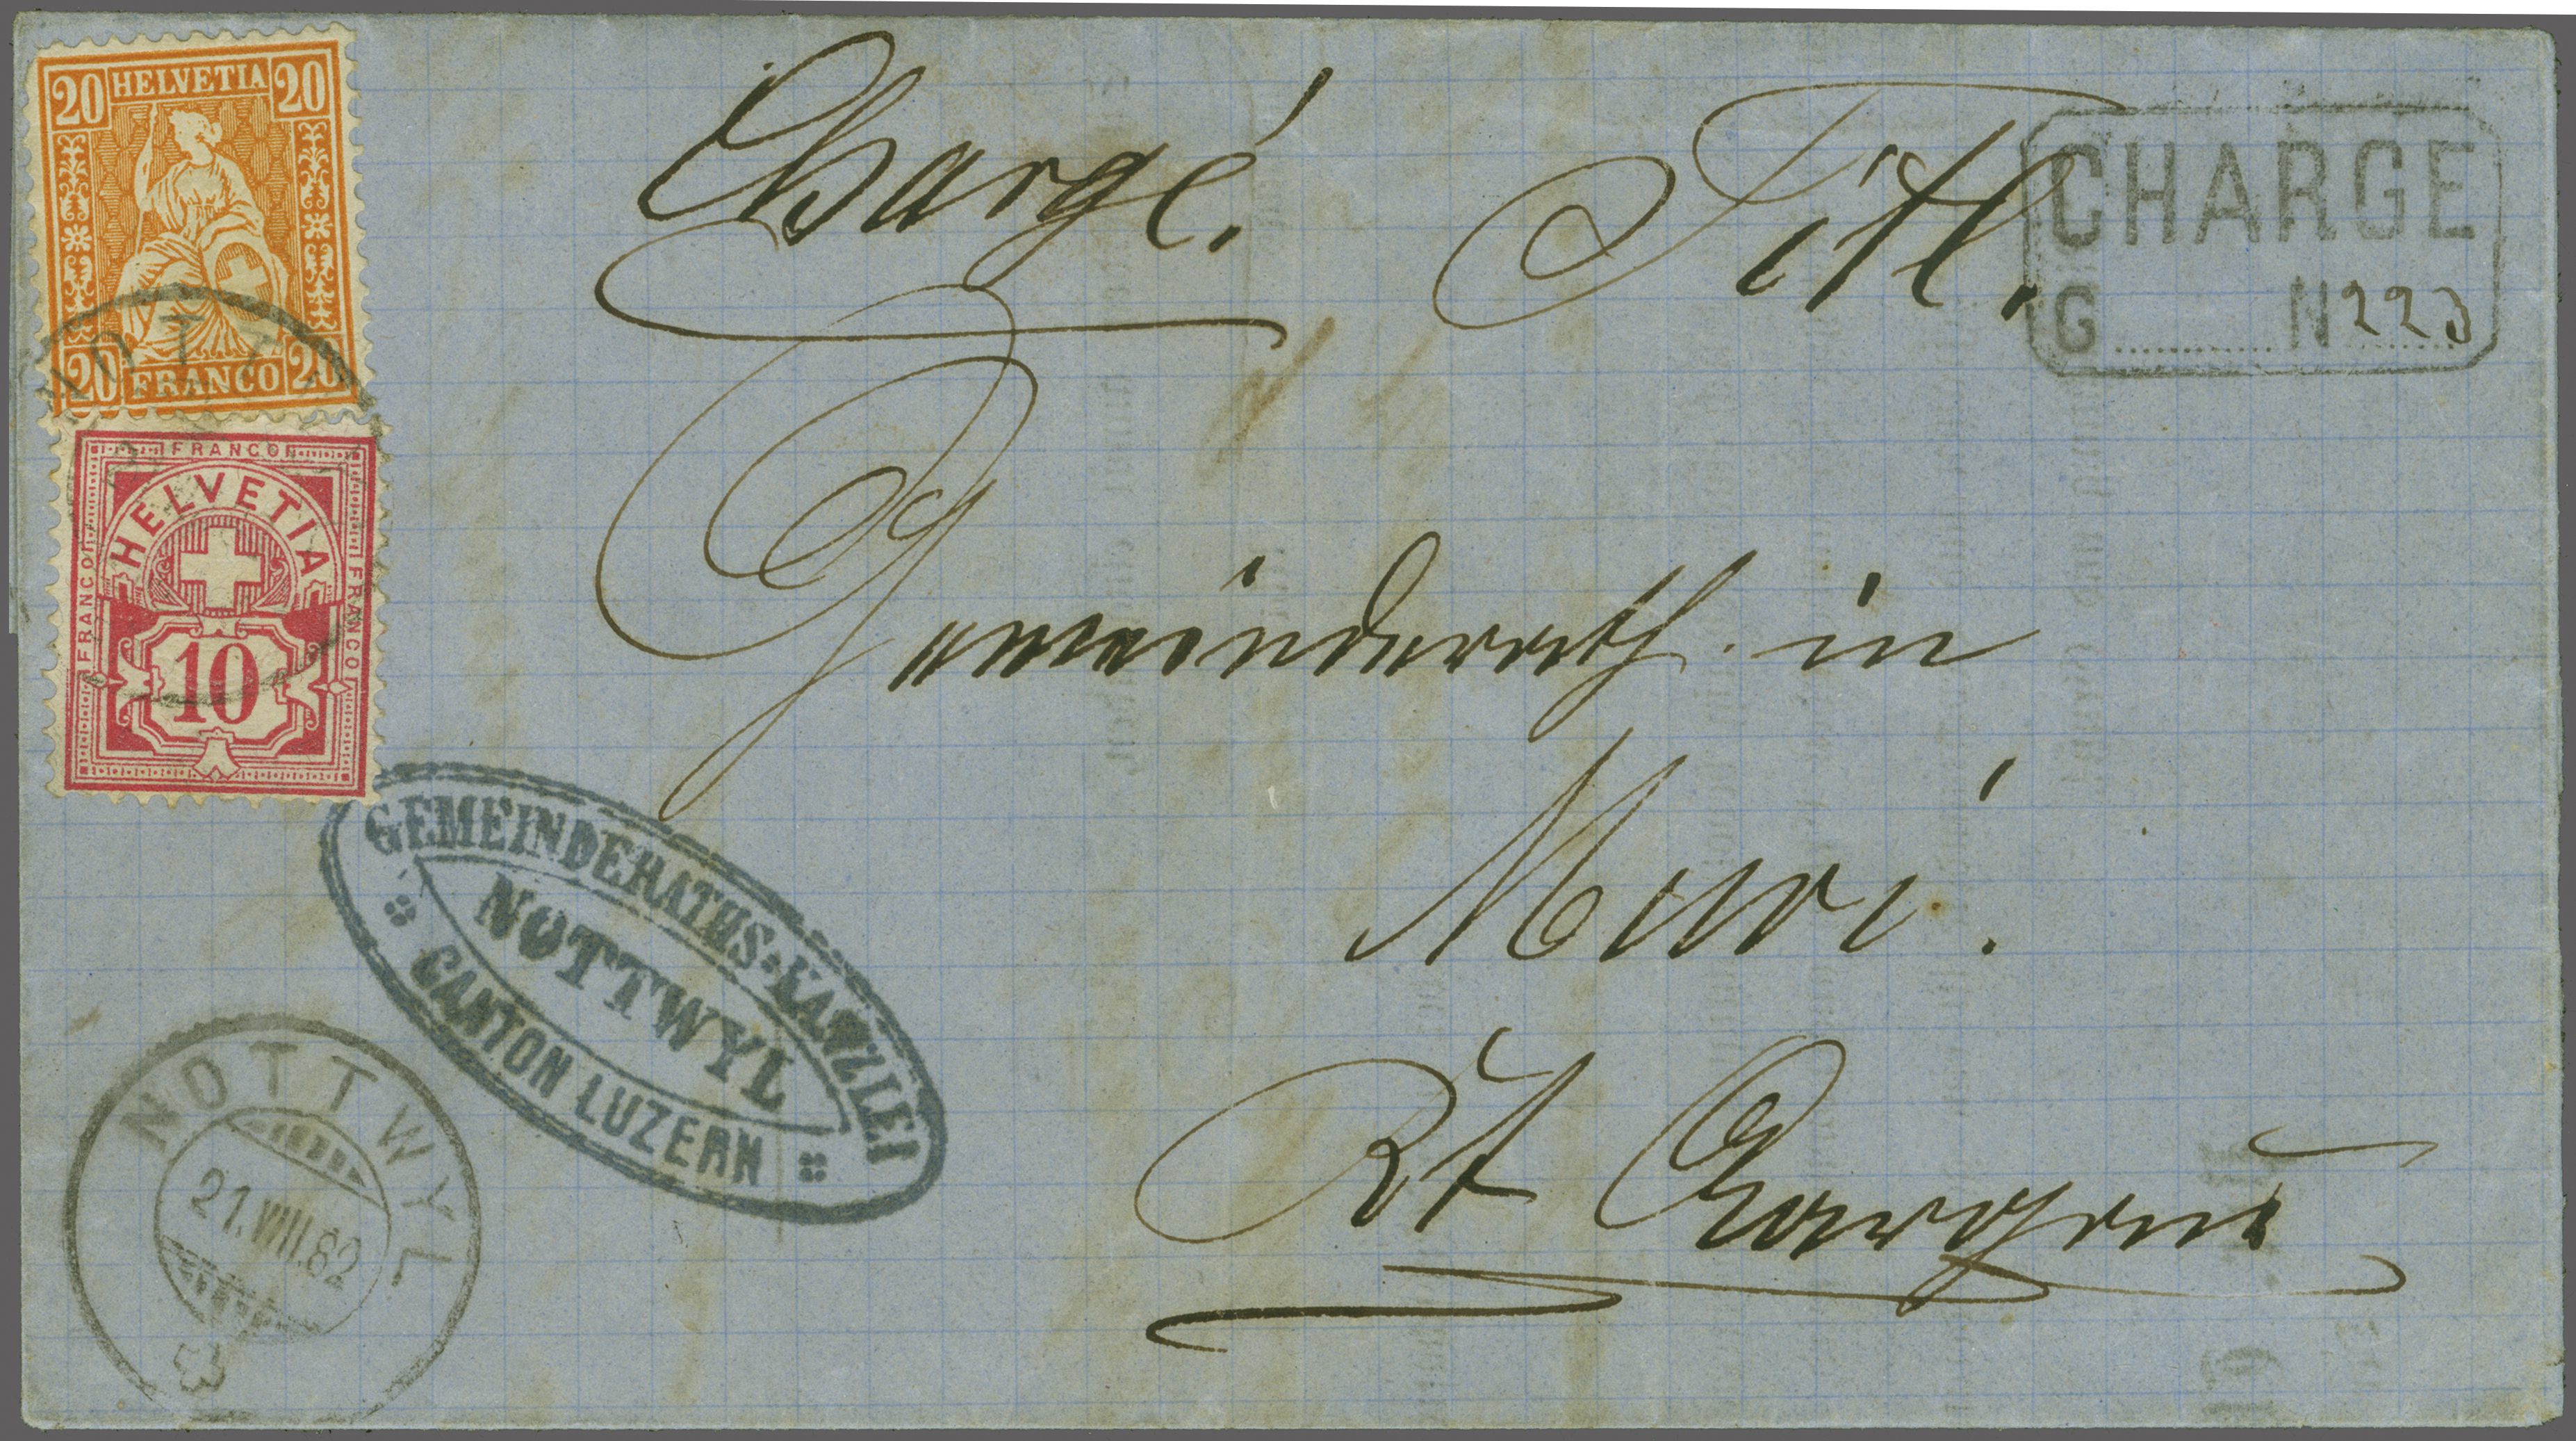 20 HELVETIA 20
20 FRANCO 20
NOTTWYL
FRANCO
FRANCO
FRANCO
HELVETIA
10
Chargé.
Titl.
CHARGE
G ............ N 223
Gemeinderath in
Muri.
Kt Aargau
GEMEINDERATHS-KANZLEI
NOTTWYL
CANTON LUZERN
NOTTWYL.
21.VIII.82